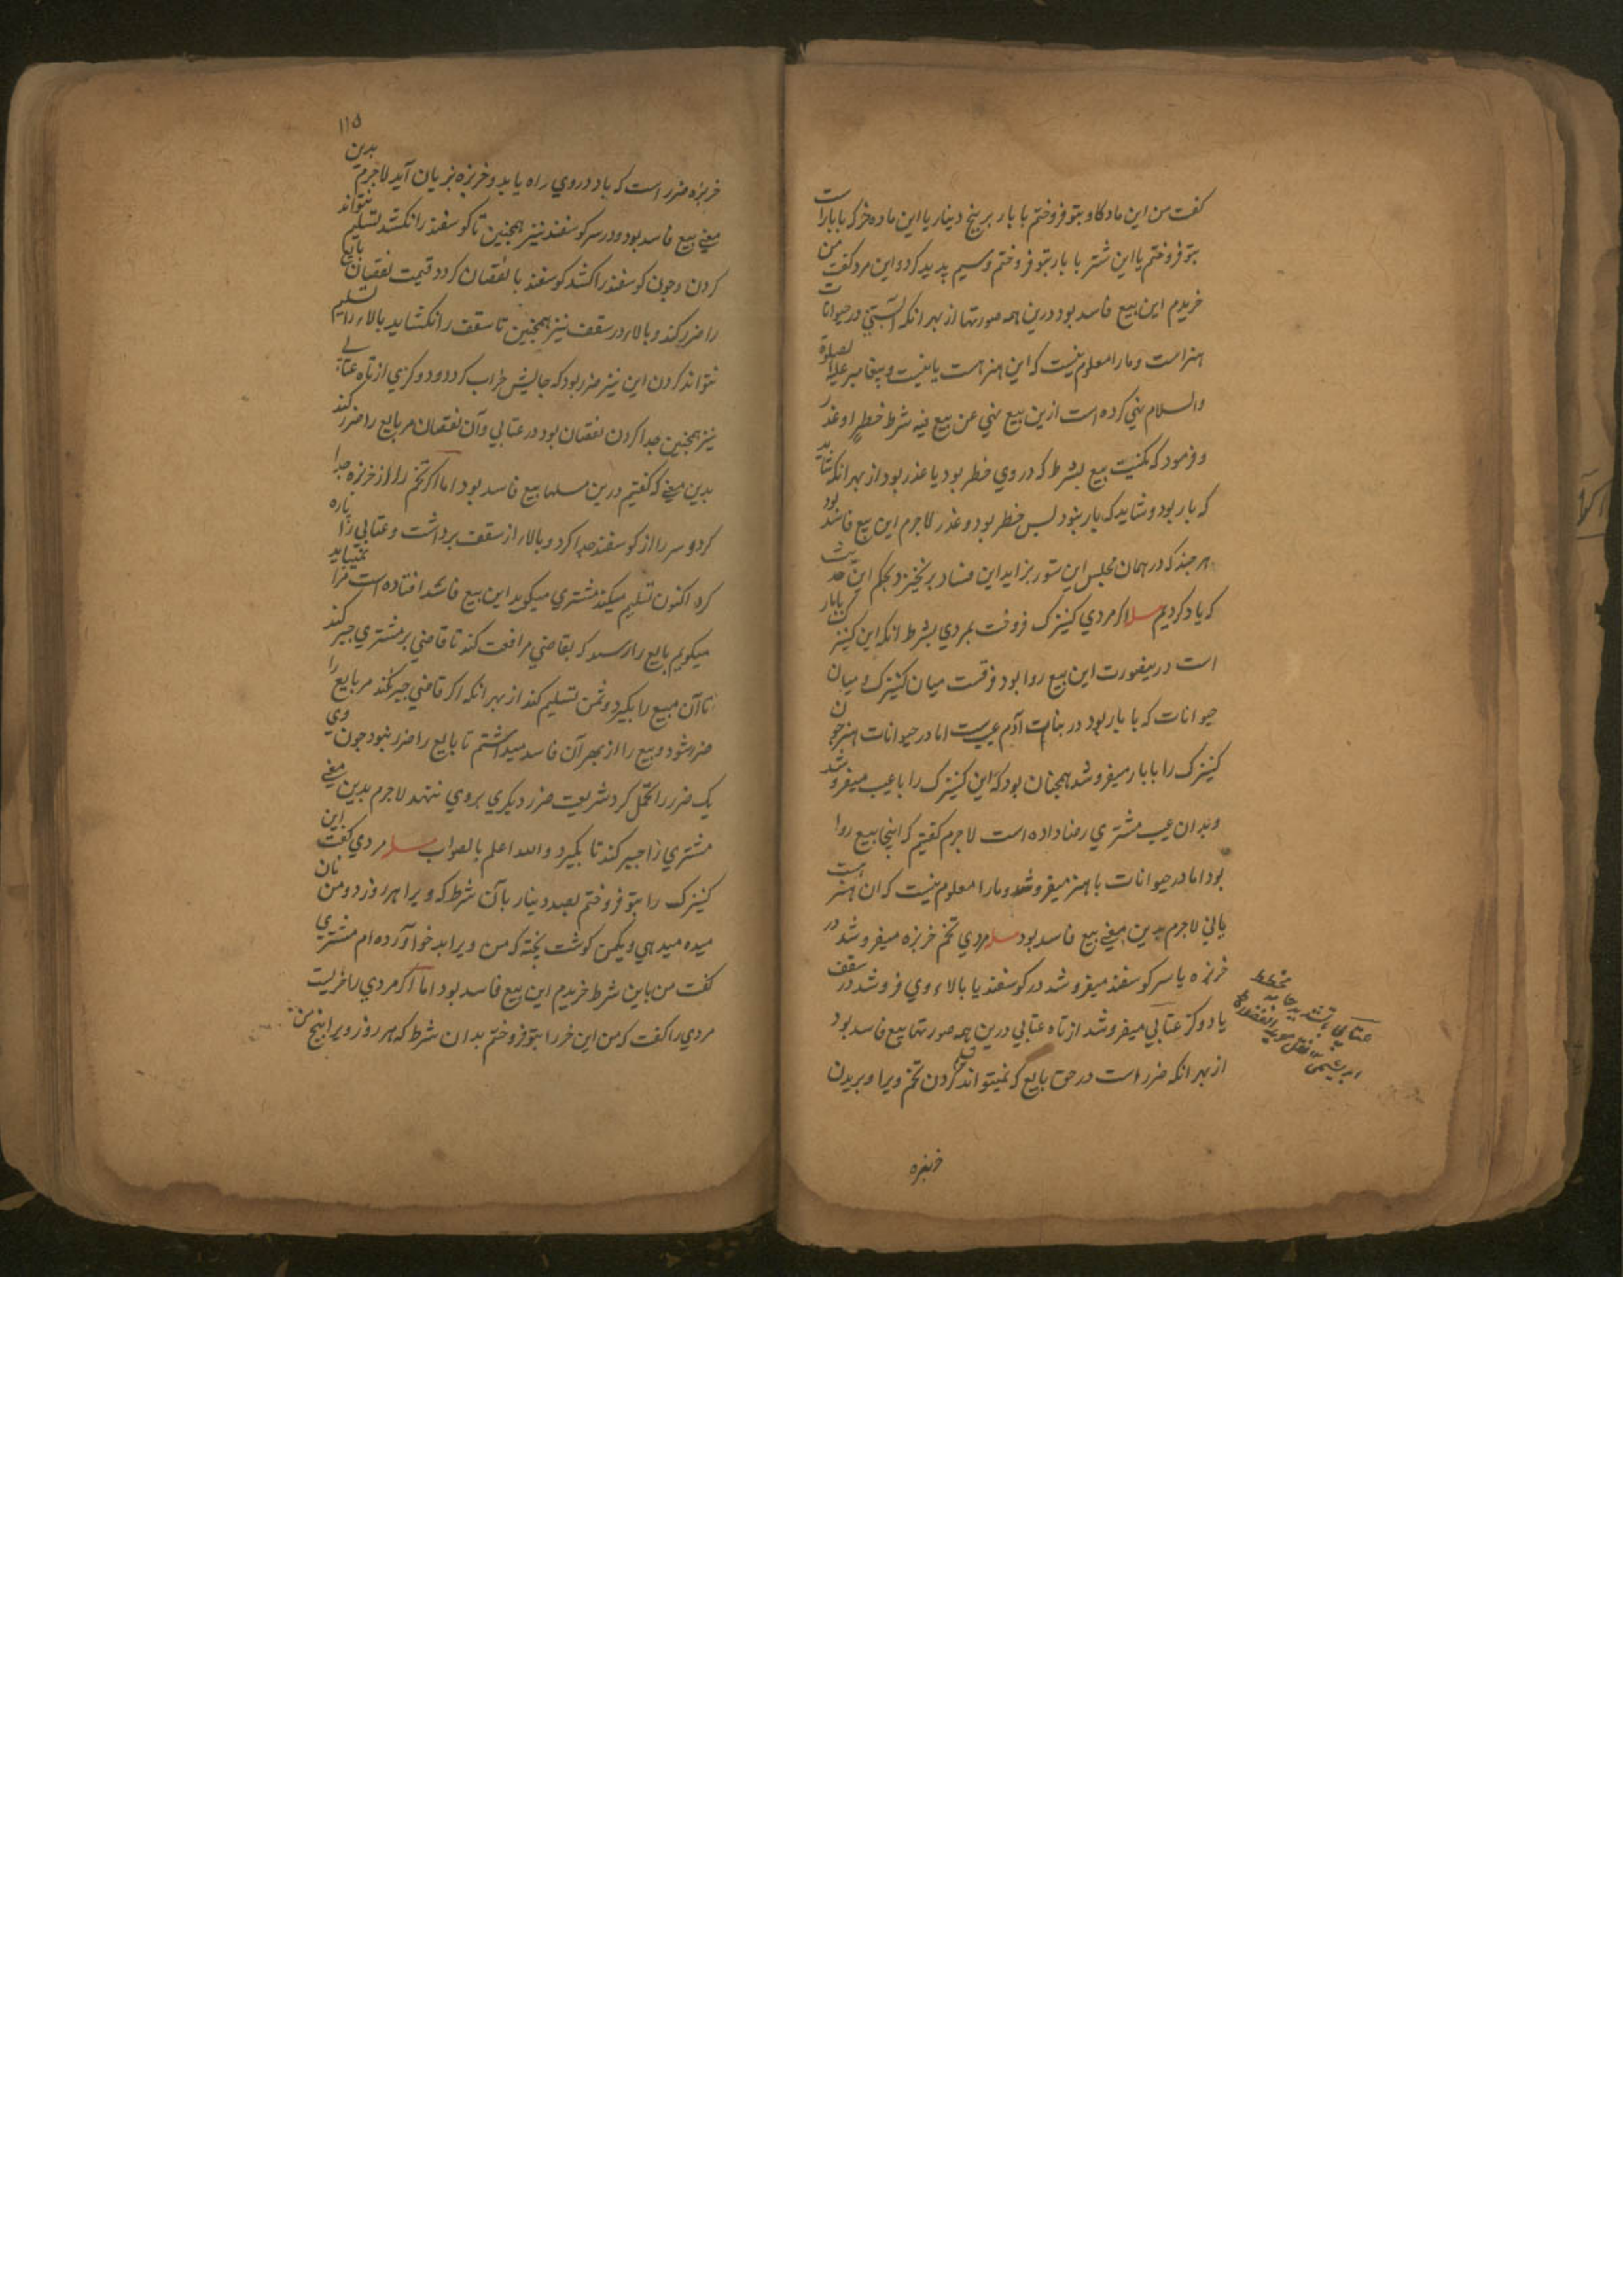 گفت من این ماده گاو بتو فروختم با بار بر پنج دینار یا این ماده خر که بابار است
بتو فروختم یا این شتر با بار بتو فروختم و سیم پدید کرد و این مرد گفت من
خریدم این بیع فاسد بود درین همه صورتها از بهر انکه آبستنی در حیوانات
هنر است و مارا معلوم نیست که این هنر هست یا نیست و پیغامبر علیه الصلوة
والسلام نهی کرده است ازین بیع نهی عن بیع فیه شرط خطر او غدر
و فرمود که مکنیت بیع بشرط که در وی خطر بود یا غدر بود از بهر انکه شاید
که بار بود و شاید که بار نبود پس خطر بود و غدر لاجرم این بیع فاسد بود
هرچند که در همان مجلس این ستور بزاید این فساد برنخیزد بحکم این حدیث
که یاد کردیم مسله اگر مردی کنیزک فروخت بمردی بشرط انکه این کنیزک بابار
است درینصورت این بیع روا بود فرقست میان کنیزک و میان
حیوانات که با بار بود در بنات آدم عیب ست اما در حیوانات هنر چون
کنیزک را بابار میفروشد همچنان بود که این کنیزک را با عیب میفروشد
و بدان عیب مشتری رضا داده است لاجرم گفتیم که اینجا بیع روا
بود اما در حیوانات با هنر میفروشد و مارا معلوم نیست که ان هنر هست
یا نی لاجرم بدین معنی بیع فاسد بود مسله مردی تخم خربزه میفروشد در
خربزه یا سر گوسفند میفروشد در گوسفند یا بالاء وی فروشد در سقف
یا دو گز عتابی میفروشد از تاه عتابی درین همه صورتها بیع فاسد بود
از بهر انکه ضرر است در حق بایع که نمیتواند کردن تخم ویرا و بریدن
خربزه
عتابی بتشدید جامه مخطط
ابریشمی
۱۱۵
خربزه ضرر است که باد در وی راه یابد و خربزه بزیان آید لاجرم بدین
معنی بیع فاسد بود و در سر گوسفند نیز همچنین تا گوسفند را نکشد تسلیم نتواند
کردن و چون گوسفند را کشد گوسفند با نقصان گردد و قیمت نقصان بایع
را ضرر کند و بالاء در سقف نیز همچنین تا سقف را نکشاید بالاء را تسلیم
نتواند کردن این نیز ضرر بود که جالیش خراب گردد و دو گزی از تاه عتابی
نیز همچنین جدا کردن نقصان بود در عتابی و آن نقصان مر بایع را ضرر کند
بدین معنی که گفتیم درین مسلها بیع فاسد بود اما اگر تخم را از خربزه جدا
کرد و سر را از گوسفند جدا کرد و بالاء از سقف برداشت و عتابی را پاره
کرد اکنون تسلیم میکند مشتری میگوید این بیع فاسد افتاده است مرا نمیباید
میگویم بایع را رسد که بقاضی مرافعت کند تا قاضی بر مشتری جبر کند
تا آن مبیع را بگیرد و ثمن تسلیم کند از بهر انکه اگر قاضی جبر نکند مر بایع را
ضرر شود و بیع را از بهر آن فاسد میداشتم تا بایع را ضرر نبود چون وی
یک ضرر را تحمل کرد شریعت ضرر دیگری بروی ننهد لاجرم بدین معنی
مشتری را جبر کند تا بگیرد والله اعلم بالصواب مسله مردی گفت این
کنیزک را بتو فروختم بصد دینار بآن شرط که ویرا هر روز دومن نان
میده میدهی و یکمن گوشت پخته که من ویرا بد خو آورده ام مشتری
گفت من باین شرط خریدم این بیع فاسد بود اما اگر مردی را خریست
مردی را گفت که من این خر را بتو فروختم بدان شرط که هر روز ویرا پنج من